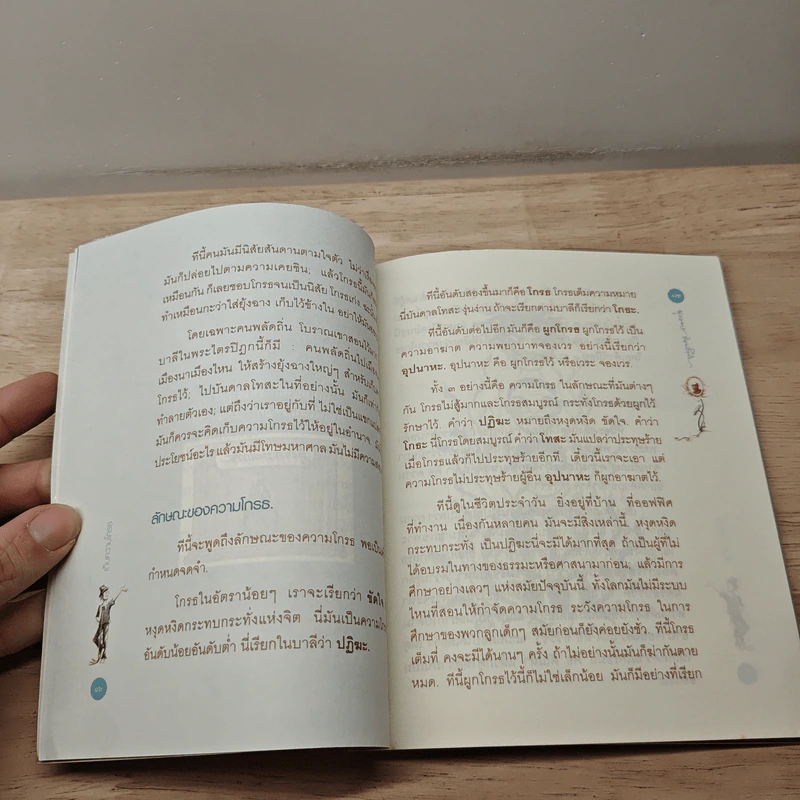 ทีนี้คนมันมีนิสัยสันดานตามใจตัว
มันก็ปล่อยไปตามความเคยชิน; แล้วโกรธนี้มันก็
เหมือนกัน ก็เลยชอบโกรธจนเป็นนิสัย โกรธเก่ง
ทำเหมือนกะว่าใส่ยุ้งฉาง เก็บไว้ข้างใน อย่าให้มัน
โดยเฉพาะคนพลัดถิ่น โบราณเขาสอนไว้
บาลีในพระไตรปิฎกนี้ก็มี : คนพลัดถิ่นไป
เมืองนาเมืองไหน ให้สร้างยุ้งฉางใหญ่ๆ สำหรับ
โกรธไว้; ไปบันดาลโทสะในที่อย่างนั้น มันก็
ทำลายตัวเอง; แต่ถึงว่าเราอยู่กับที่ ไม่ใช่เป็นแขก
มันก็ควรจะคิดเก็บความโกรธไว้ให้อยู่ในอำนาจ
ประโยชน์อะไร แล้วมันมีโทษมหาศาล มันไม่มีความ
ลักษณะของความโกรธ.
ทีนี้จะพูดถึงลักษณะของความโกรธ พอเป็น
กำหนดจดจำ.
โกรธในอัตราน้อยๆ เราจะเรียกว่า ขัดใจ
หงุดหงิดกระทบกระทั่งแห่งจิต นี่มันเป็นความ
อันดับน้อยอันดับต่ำ นี่เรียกในบาลีว่า ปฏิฆะ.
เก็บความโกรธ
๑๖
ทีนี้อันดับสองขึ้นมาก็คือ โกรธ โกรธเต็มความหมาย
นี่บันดาลโทสะ งุ่นง่าน ถ้าจะเรียกตามบาลีก็เรียกว่า โกธะ.
ทีนี้อันดับต่อไปอีก มันก็คือ ผูกโกรธ ผูกโกรธไว้ เป็น
ความอาฆาต ความพยาบาทจองเวร อย่างนี้เรียกว่า
อุปนาหะ. อุปนาหะ คือ ผูกโกรธไว้ หรือเวระ จองเวร.
ทั้ง ๓ อย่างนี้คือ ความโกรธ ในลักษณะที่มันต่างๆ
กัน โกรธไม่สู้มากและโกรธสมบูรณ์ กระทั่งโกรธด้วยผูกไว้
รักษาไว้. คำว่า ปฏิฆะ หมายถึงหงุดหงิด ขัดใจ. คำว่า
โกธะ นี่โกรธโดยสมบูรณ์ คำว่า โทสะ มันแปลว่าประทุษร้าย
เมื่อโกรธแล้วก็ไปประทุษร้ายอีกที. เดี๋ยวนี้เราจะเอา แต่
ความโกรธไม่ประทุษร้ายผู้อื่น อุปนาหะ ก็ผูกอาฆาตไว้.
ทีนี้ดูในชีวิตประจำวัน ยิ่งอยู่ที่บ้าน ที่ออฟฟิศ
ที่ทำงาน เนื่องกันหลายคน มันจะมีสิ่งเหล่านี้. หงุดหงิด
กระทบกระทั่ง เป็นปฏิฆะนี่จะมีได้มากที่สุด ถ้าเป็นผู้ที่ไม่
ได้อบรมในทางของธรรมะหรือศาสนามาก่อน; แล้วมีการ
ศึกษาอย่างเลวๆ แห่งสมัยปัจจุบันนี้. ทั้งโลกมันไม่มีระบบ
ไหนที่สอนให้กำจัดความโกรธ ระวังความโกรธ ในการ
ศึกษาของพวกลูกเด็กๆ สมัยก่อนก็ยังค่อยยังชั่ว. ทีนี้โกรธ
เต็มที่ คงจะมีได้นานๆ ครั้ง ถ้าไม่อย่างนั้นมันก็ฆ่ากันตาย
หมด. ทีนี้ผูกโกรธไว้นี้ก็ไม่ใช่เล็กน้อย มันก็มีอย่างที่เรียก